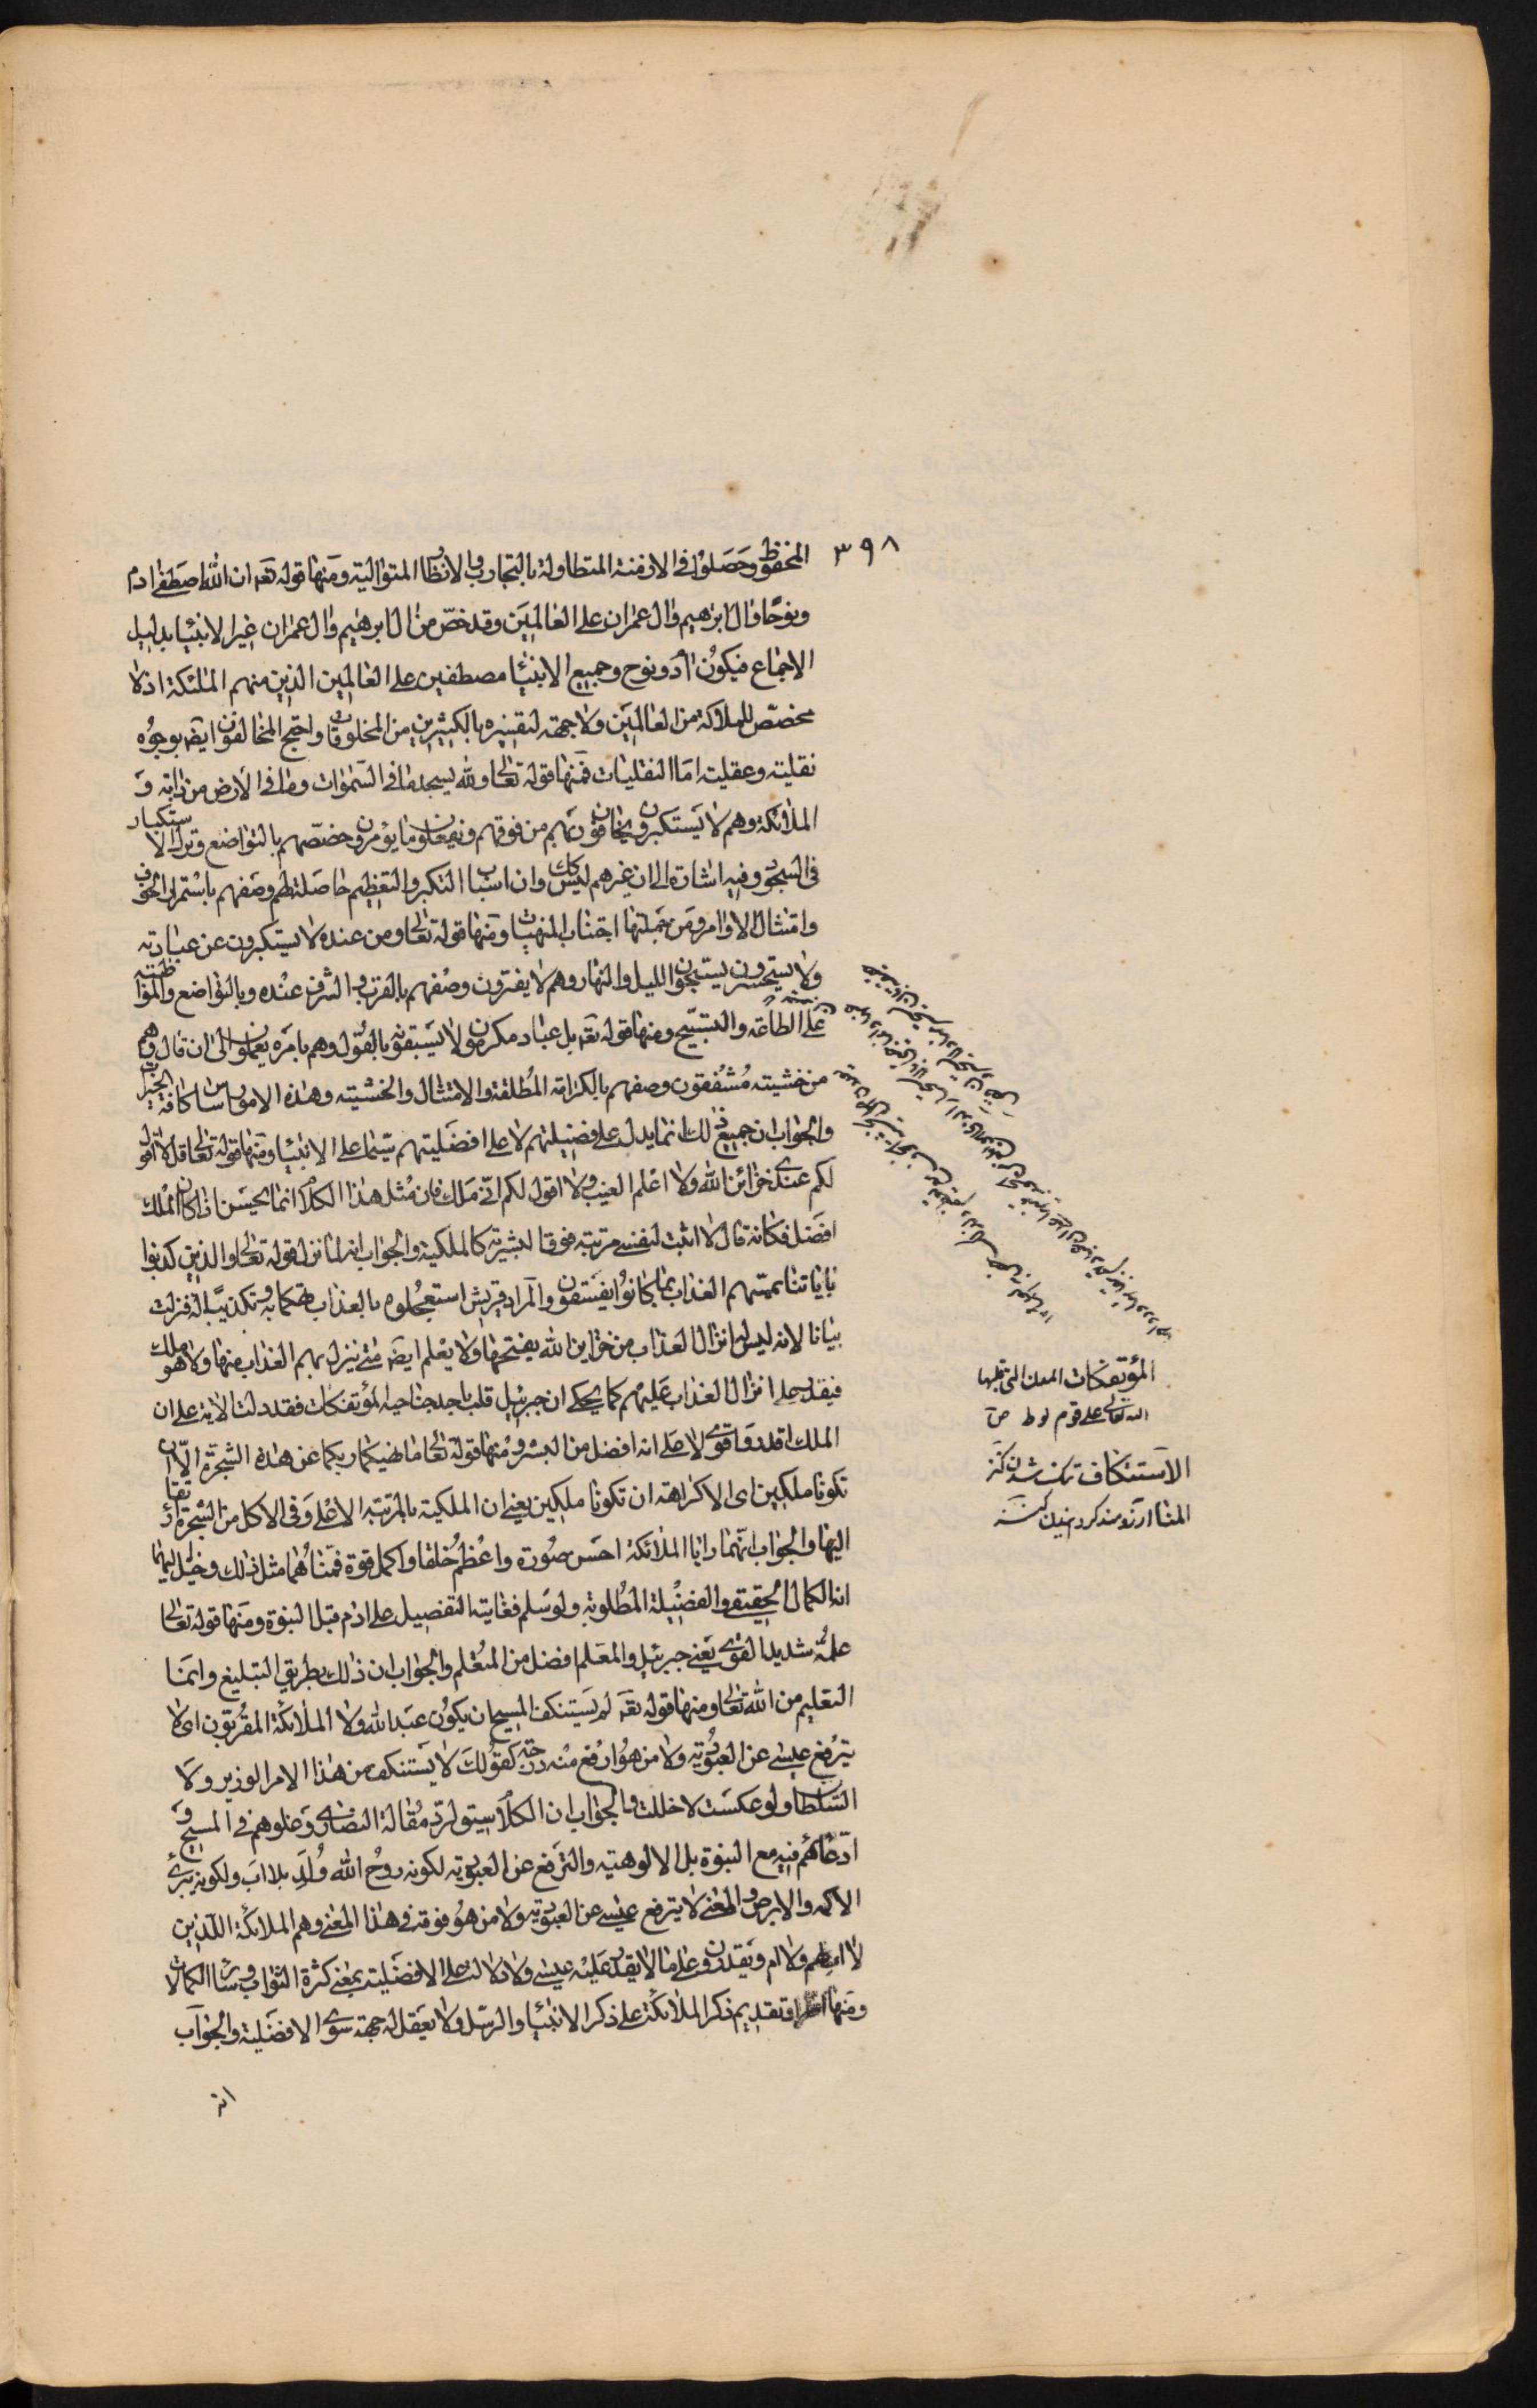 ٣٩٨
المحفوظ وحصلوا فى الازمنة المتطاولة بالتجارب والانظار المتوالية ومنها قوله تعه ان الله اصطفى ادم
ونوحا وال ابرهيم وال عمران على العالمين وقد خص من ال ابرهيم وال عمران غير الانبيا بدليل
الاجماع فيكون ادم ونوح وجميع الانبيا مصطفين على العالمين الذين منهم الملئكة اذ لا
مخصص للملائكة من العالمين ولا جهة لتفسيره بالكثيرين من المخلوقات واحتج المخالفون ايضه بوجوه
نقلية وعقلية اما النقليات فمنها قوله تعالى ولله يسجد ما فى السموات وما فى الارض من دابة و
الملائكة وهم لا يستكبرون يخافون ربهم من فوقهم ويفعلون ما يؤمرون خصصهم بالتواضع وترك الاستكبار
فى السجود وفيه اشارة الى ان غيرهم ليس كك وان اسباب التكبر والتعظيم حاصلة لهم وصفهم باستمرار الخوف
وامتثال الاوامر ومن جملتها اجتناب المنهيات ومنها قوله تعالى ومن عنده لا يستكبرون عن عبادته
ولا يستحسرون يسبحون الليل والنهار وهم لا يفترون وصفهم بالقرب والشرف عنده وبالتواضع والمواظبة
على الطاعة والتسبيح ومنها قوله تعه بل عباد مكرمون لا يسبقونه بالقول وهم بامره يعملون الى ان قال وهم
من خشيته مشفقون وصفهم بالكرامة المطلقة والامتثال والخشية وهذه الامور اساس كافة الخيرات
والجواب ان جميع ذلك انما يدل على فضيلتهم لا على افضليتهم سيما على الانبيا ومنها قوله تعالى قل لا اقول
لكم عندى خزائن الله ولا اعلم الغيب ولا اقول لكم انى ملك فان مثل هذا الكلام انما يحسن اذا كان الملك
افضل فكانه قال لا اثبت لنفسى مرتبة فوق البشرية كالملكية والجواب انه لما نزل قوله تعالى والذين كذبوا
باياتنا يمسهم العذاب بما كانوا يفسقون والمراد قريش استعجلوه بالعذاب تهكما به وتكذيبا له فنزلت
بيانا لانه ليس له انزال العذاب من خزاين الله يفتحها ولا يعلم ايضه متى ينزل بهم العذاب منها ولا هو ملك
فيقدر على انزال العذاب عليهم كما يحكى ان جبرئيل قلب باحد جناحيه المؤتفكات فقد دلت الاية على ان
الملك اقدر واقوى لا على انه افضل من البشر ومنها قوله تعالى ما نهيكما ربكما عن هذه الشجرة الا ان
تكونا ملكين اى الا كراهة ان تكونا ملكين يعنى ان الملكية بالمرتبة الاعلى وفى الاكل من الشجرة ارتقا
اليها والجواب انهما رايا الملائكة احسن صورة واعظم خلقا واكمل قوة فمناهما مثل ذلك وخيل اليهما
انه الكمال الحقيقى والفضيلة المطلوبة ولو سلم فغايته التفضيل على ادم قبل النبوة ومنها قوله تعالى
علمه شديد القوى يعنى جبرئيل والمعلم افضل من المتعلم والجواب ان ذلك بطريق التبليغ وانما
التعليم من الله تعالى ومنها قوله تعه لن يستنكف المسيح ان يكون عبدا لله ولا الملائكة المقربون اى لا
يترفع عيسى عن العبودية ولا من هو ارفع منه درجة كقولك لا يستنكف من هذا الامر الوزير ولا
السلطان ولو عكست لاخللت والجواب ان الكلام سيق لرد مقالة النصارى وغلوهم فى المسيح و
ادعائهم فيه مع النبوة بل الالوهية والترفع عن العبودية لكونه روح الله ولد بلا اب ولكونه يبرئ
الاكمه والابرص والمعنى لا يترفع عيسى عن العبودية ولا من هو فوقه فى هذا المعنى وهم الملائكة الذين
لا اب لهم ولا ام ويقدرون على ما لا يقدر عليه عيسى ولا دلالة على الافضلية بمعنى كثرة الثواب وسائر الكمالات
ومنها اطراد تقديم ذكر الملائكة على ذكر الانبيا والرسل ولا يعقل له جهة سوى الافضلية والجواب
انه
المؤتفكات المدن التى قلبها
الله تعالى على قوم لوط ص
الاستنكاف ننك شدن كنز
المنا ارزومند كردنيدن كنز